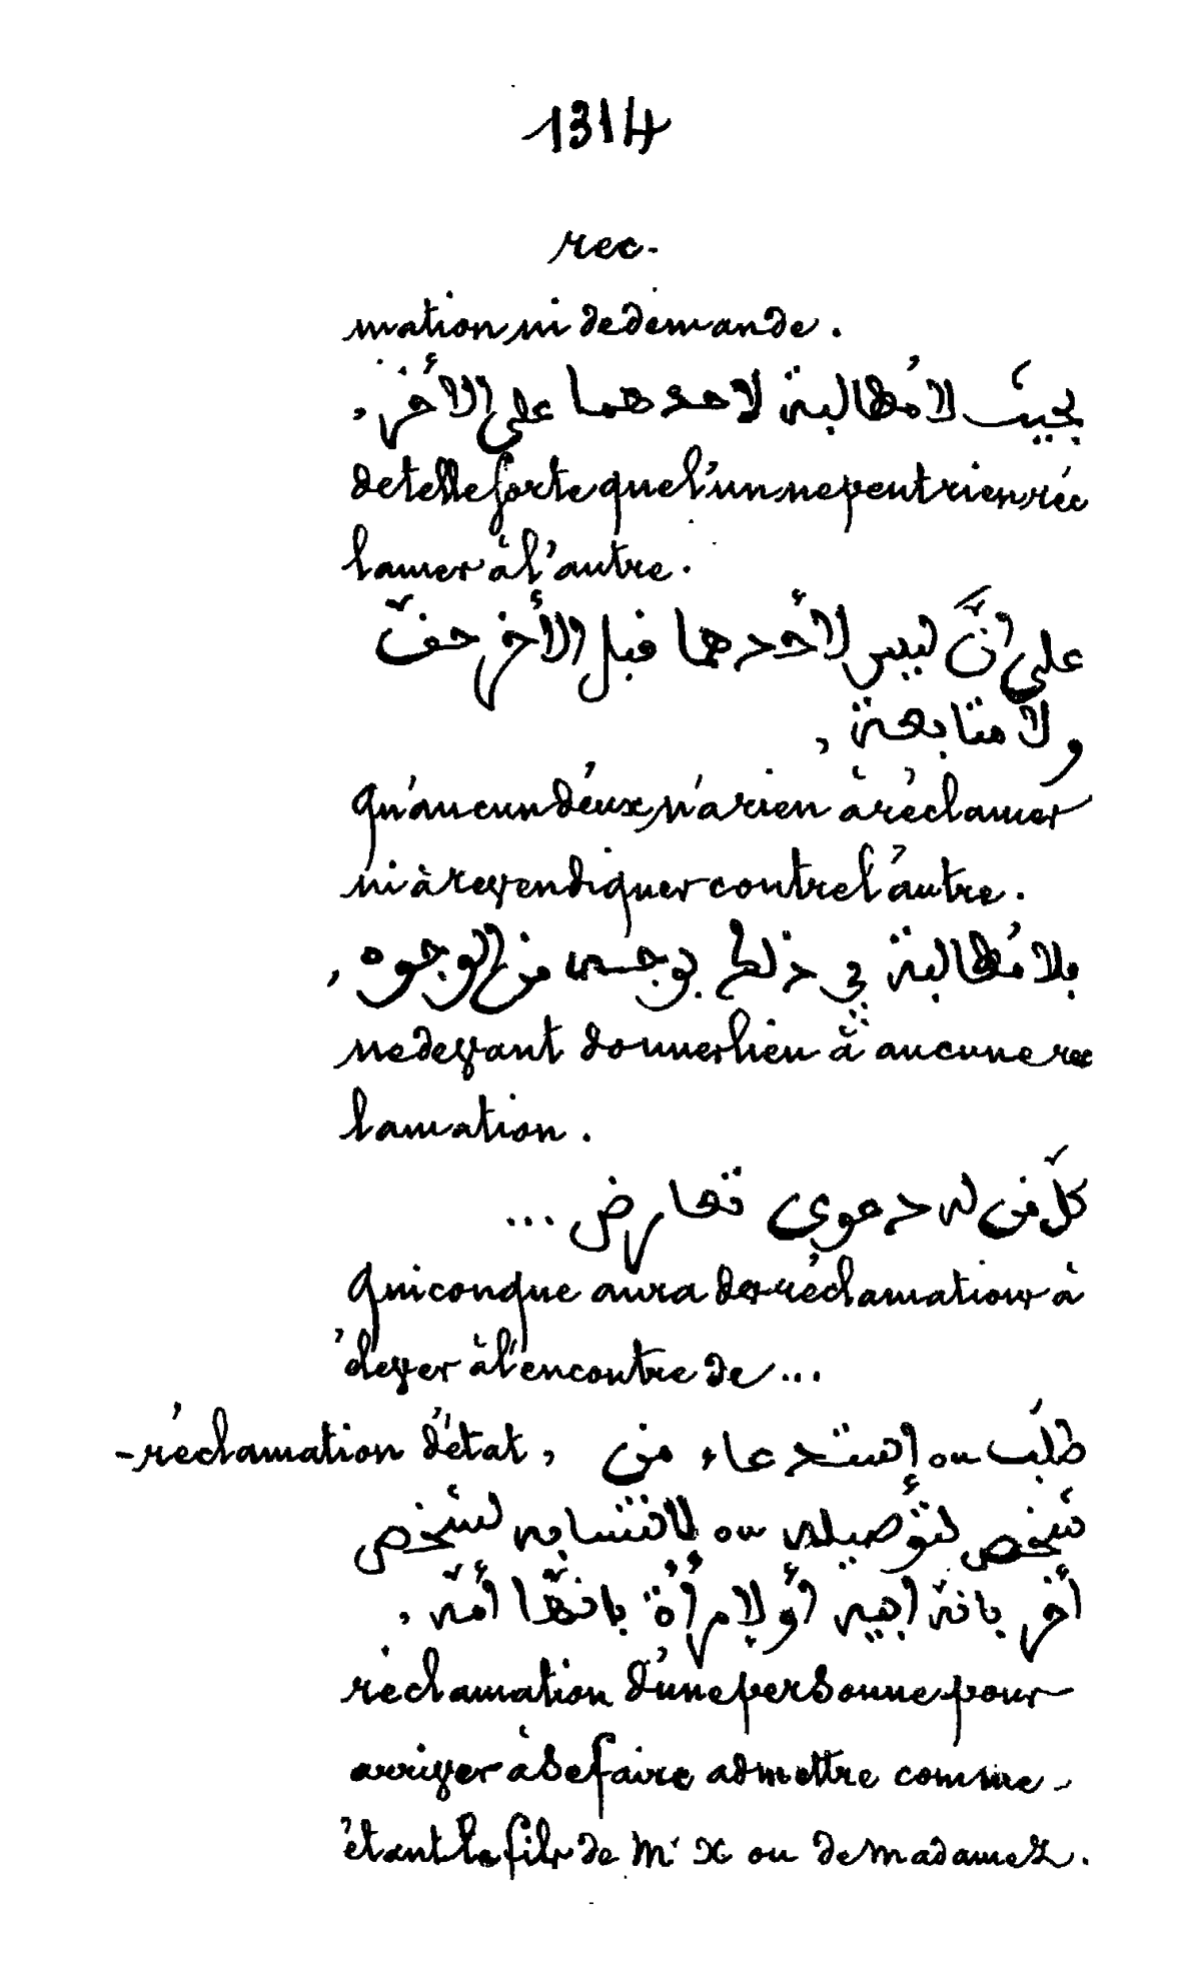 1314
rec-
mation, ni de demande.
بحيث لا مُطالبة لاحدهما على الأخر,
de telle sorte que l'un ne peut rien réc
lamer à l'autre.
على انَّ ليس لأحدهما فبل الأخر حقّ
ولا متابعة,
qu'aucun d'eux, n'a rien à réclamer
ni à revendiquer contre l'autre.
بلا مُطالبة في ذلك بوجه من الوجوه,
ne devant donner lieu à aucune rec
lamation.
كلّ من له دعوى تعارض ...
Quiconque aura des réclamations à
élever à l'encontre de ...
- réclamation d'état, طلب ou إستدعاء من
شخص لتؤصيله ou لانتسابه لشخص
أخر بانّه ابنه أو لإمرأة بانّها أمّه,
réclamation d'une personne pour
arriver à se faire admettre comme
étant le fils de Mr X ou de Madame Z.